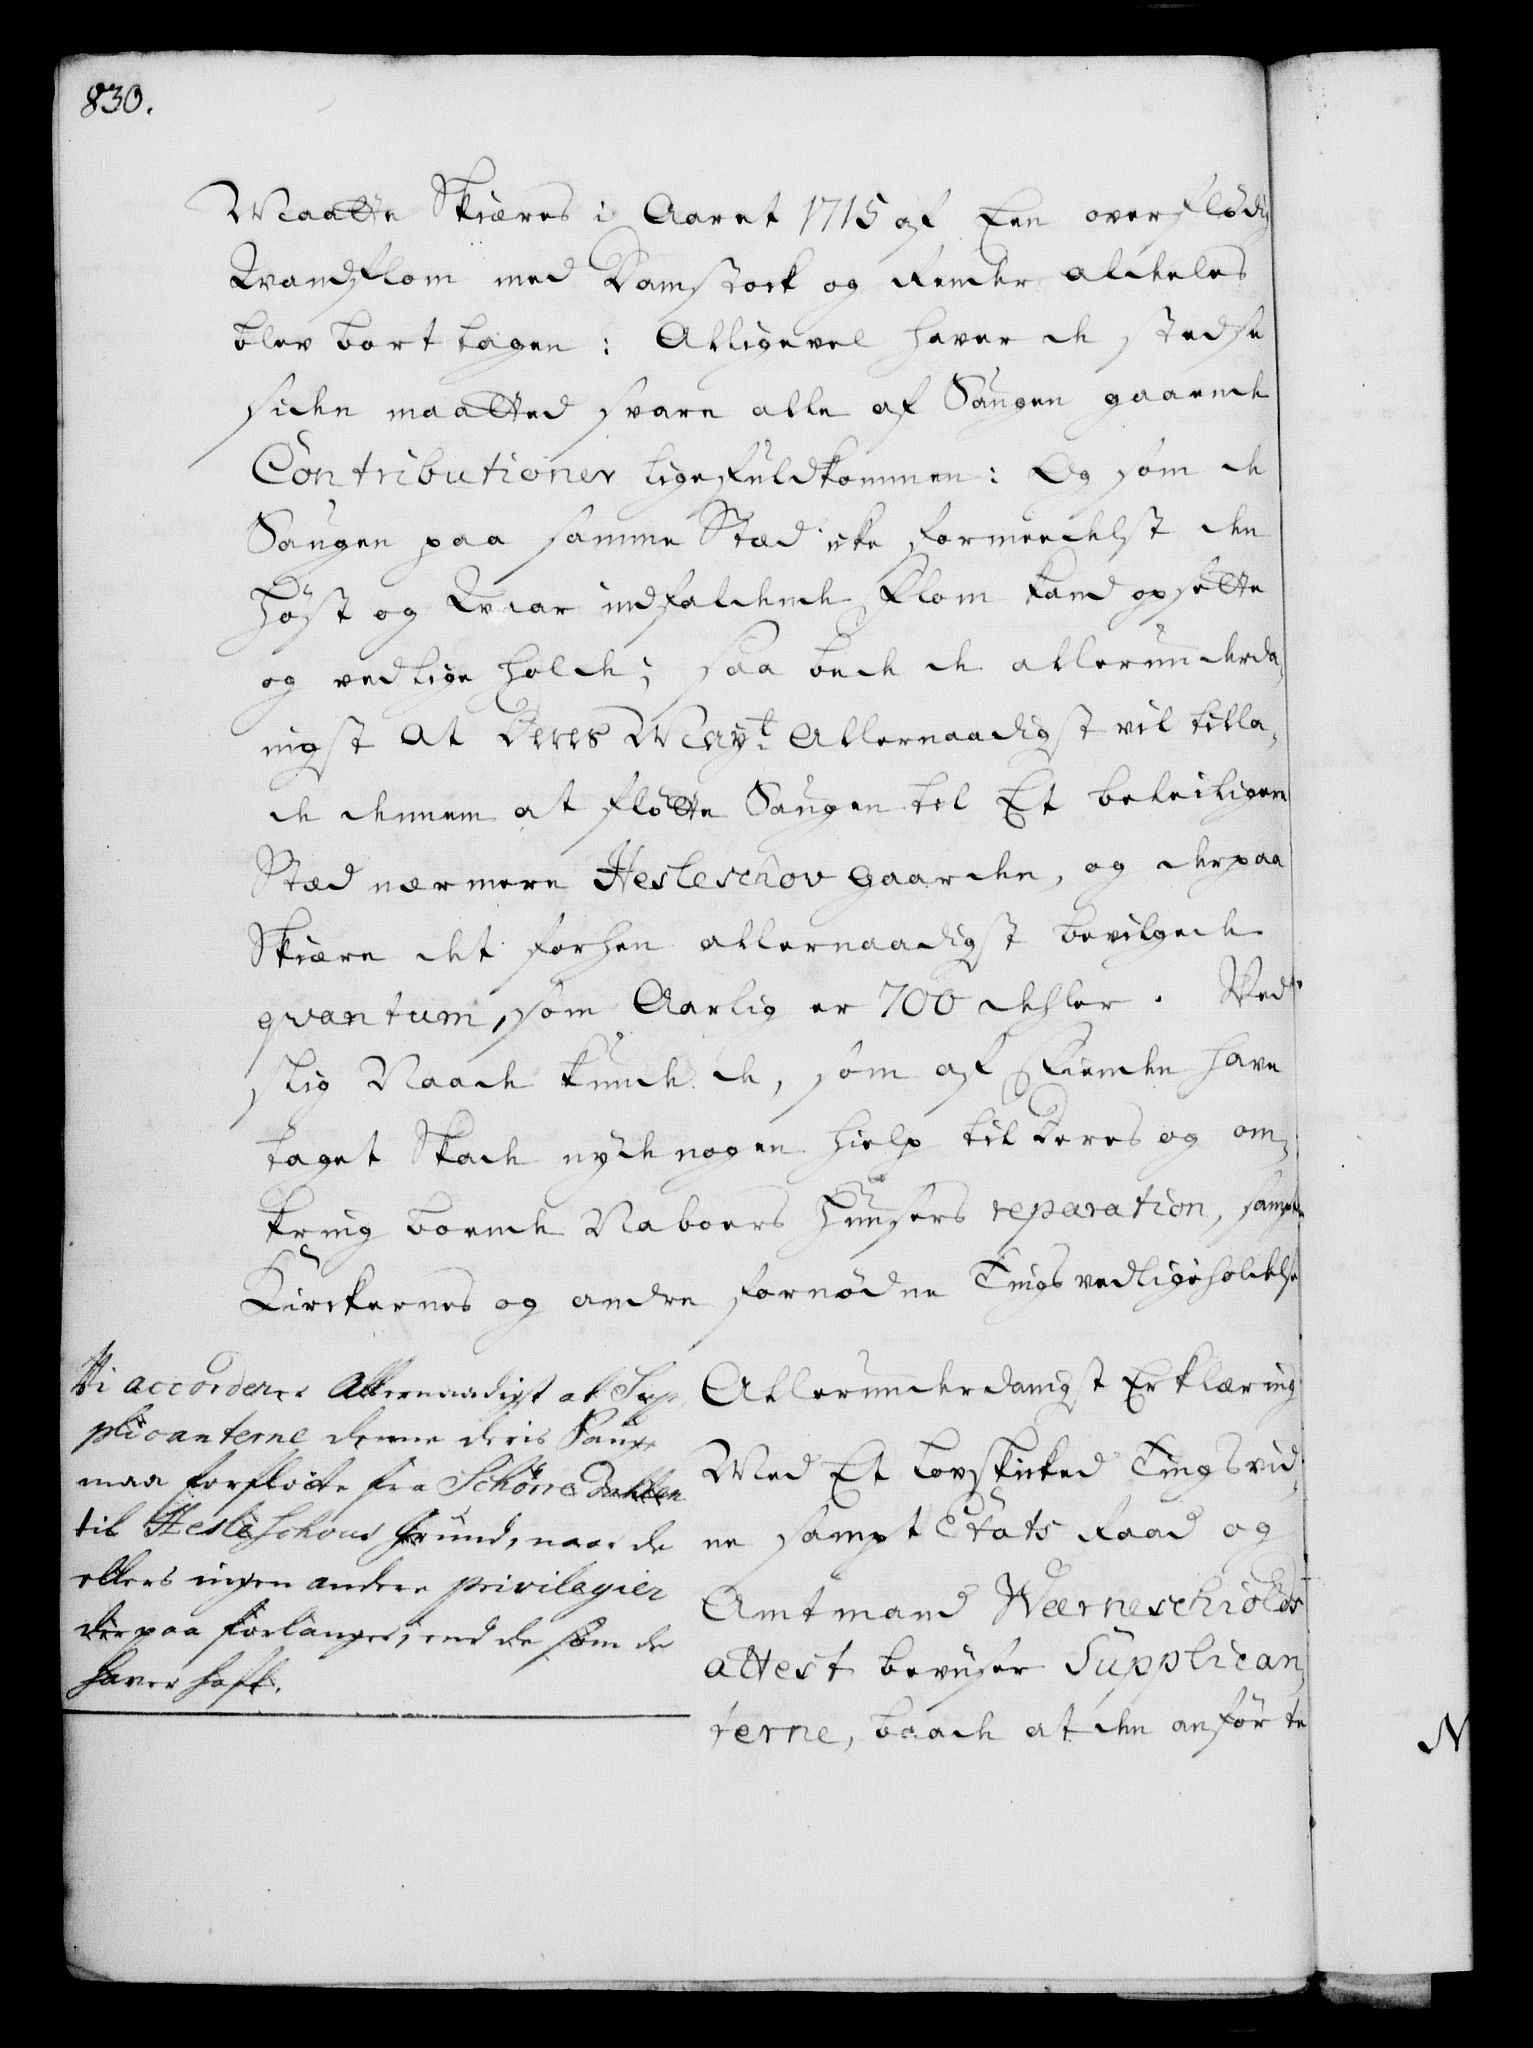 830.
Maatte Skiæres i Aaret 1715 af Een overflødig
Wandflom med Damstock og Render aldeles
blev bort tagen: Alligevel haver de stedse
siden maatted svare alle af Saugen gaaende
Contributioner ligefuldkommen: Og som de
Saugen paa samme Stæd icke formeedelst den
Høst og Vaar indfaldende Flom kand opsette
og vedlige holde; saa bede de allerunderda,
nigst at Deres Mayt. Allernaadigst vil tilla,
de dennem at flötte Saugen til Et beleiligere
Stæd nærmere Hesleschov gaarden, og derpaa
Skiære det forhen allernaadigst bevilgede
qvantum, som Aarlig er 700 dehler. Ved
slig Naade kunde de, som af Fienden have
taget Skade nyde nogen hielp til deres og om,
kring boende Naboers Huusers reparation, sampt
Kirckernes og andre fornødne Tings vedligeholdelse
Vi accorderer Allernaadigst at Sup,
plicanterne denne deris Sauge
maa forflötte fra Schönne Dahlen
til Hesleschous Grund, naar de
ellers ingen andere privilegier
der paa forlanger, end de som de
haver haft.
Allerunderdanigst Erklæring
Med Et lovskicked Tingsvid,
ne sampt Etats Raad og
Amtmand Wærneschiolds
attest beviiser Supplican,
terne, baade at den anförte
N